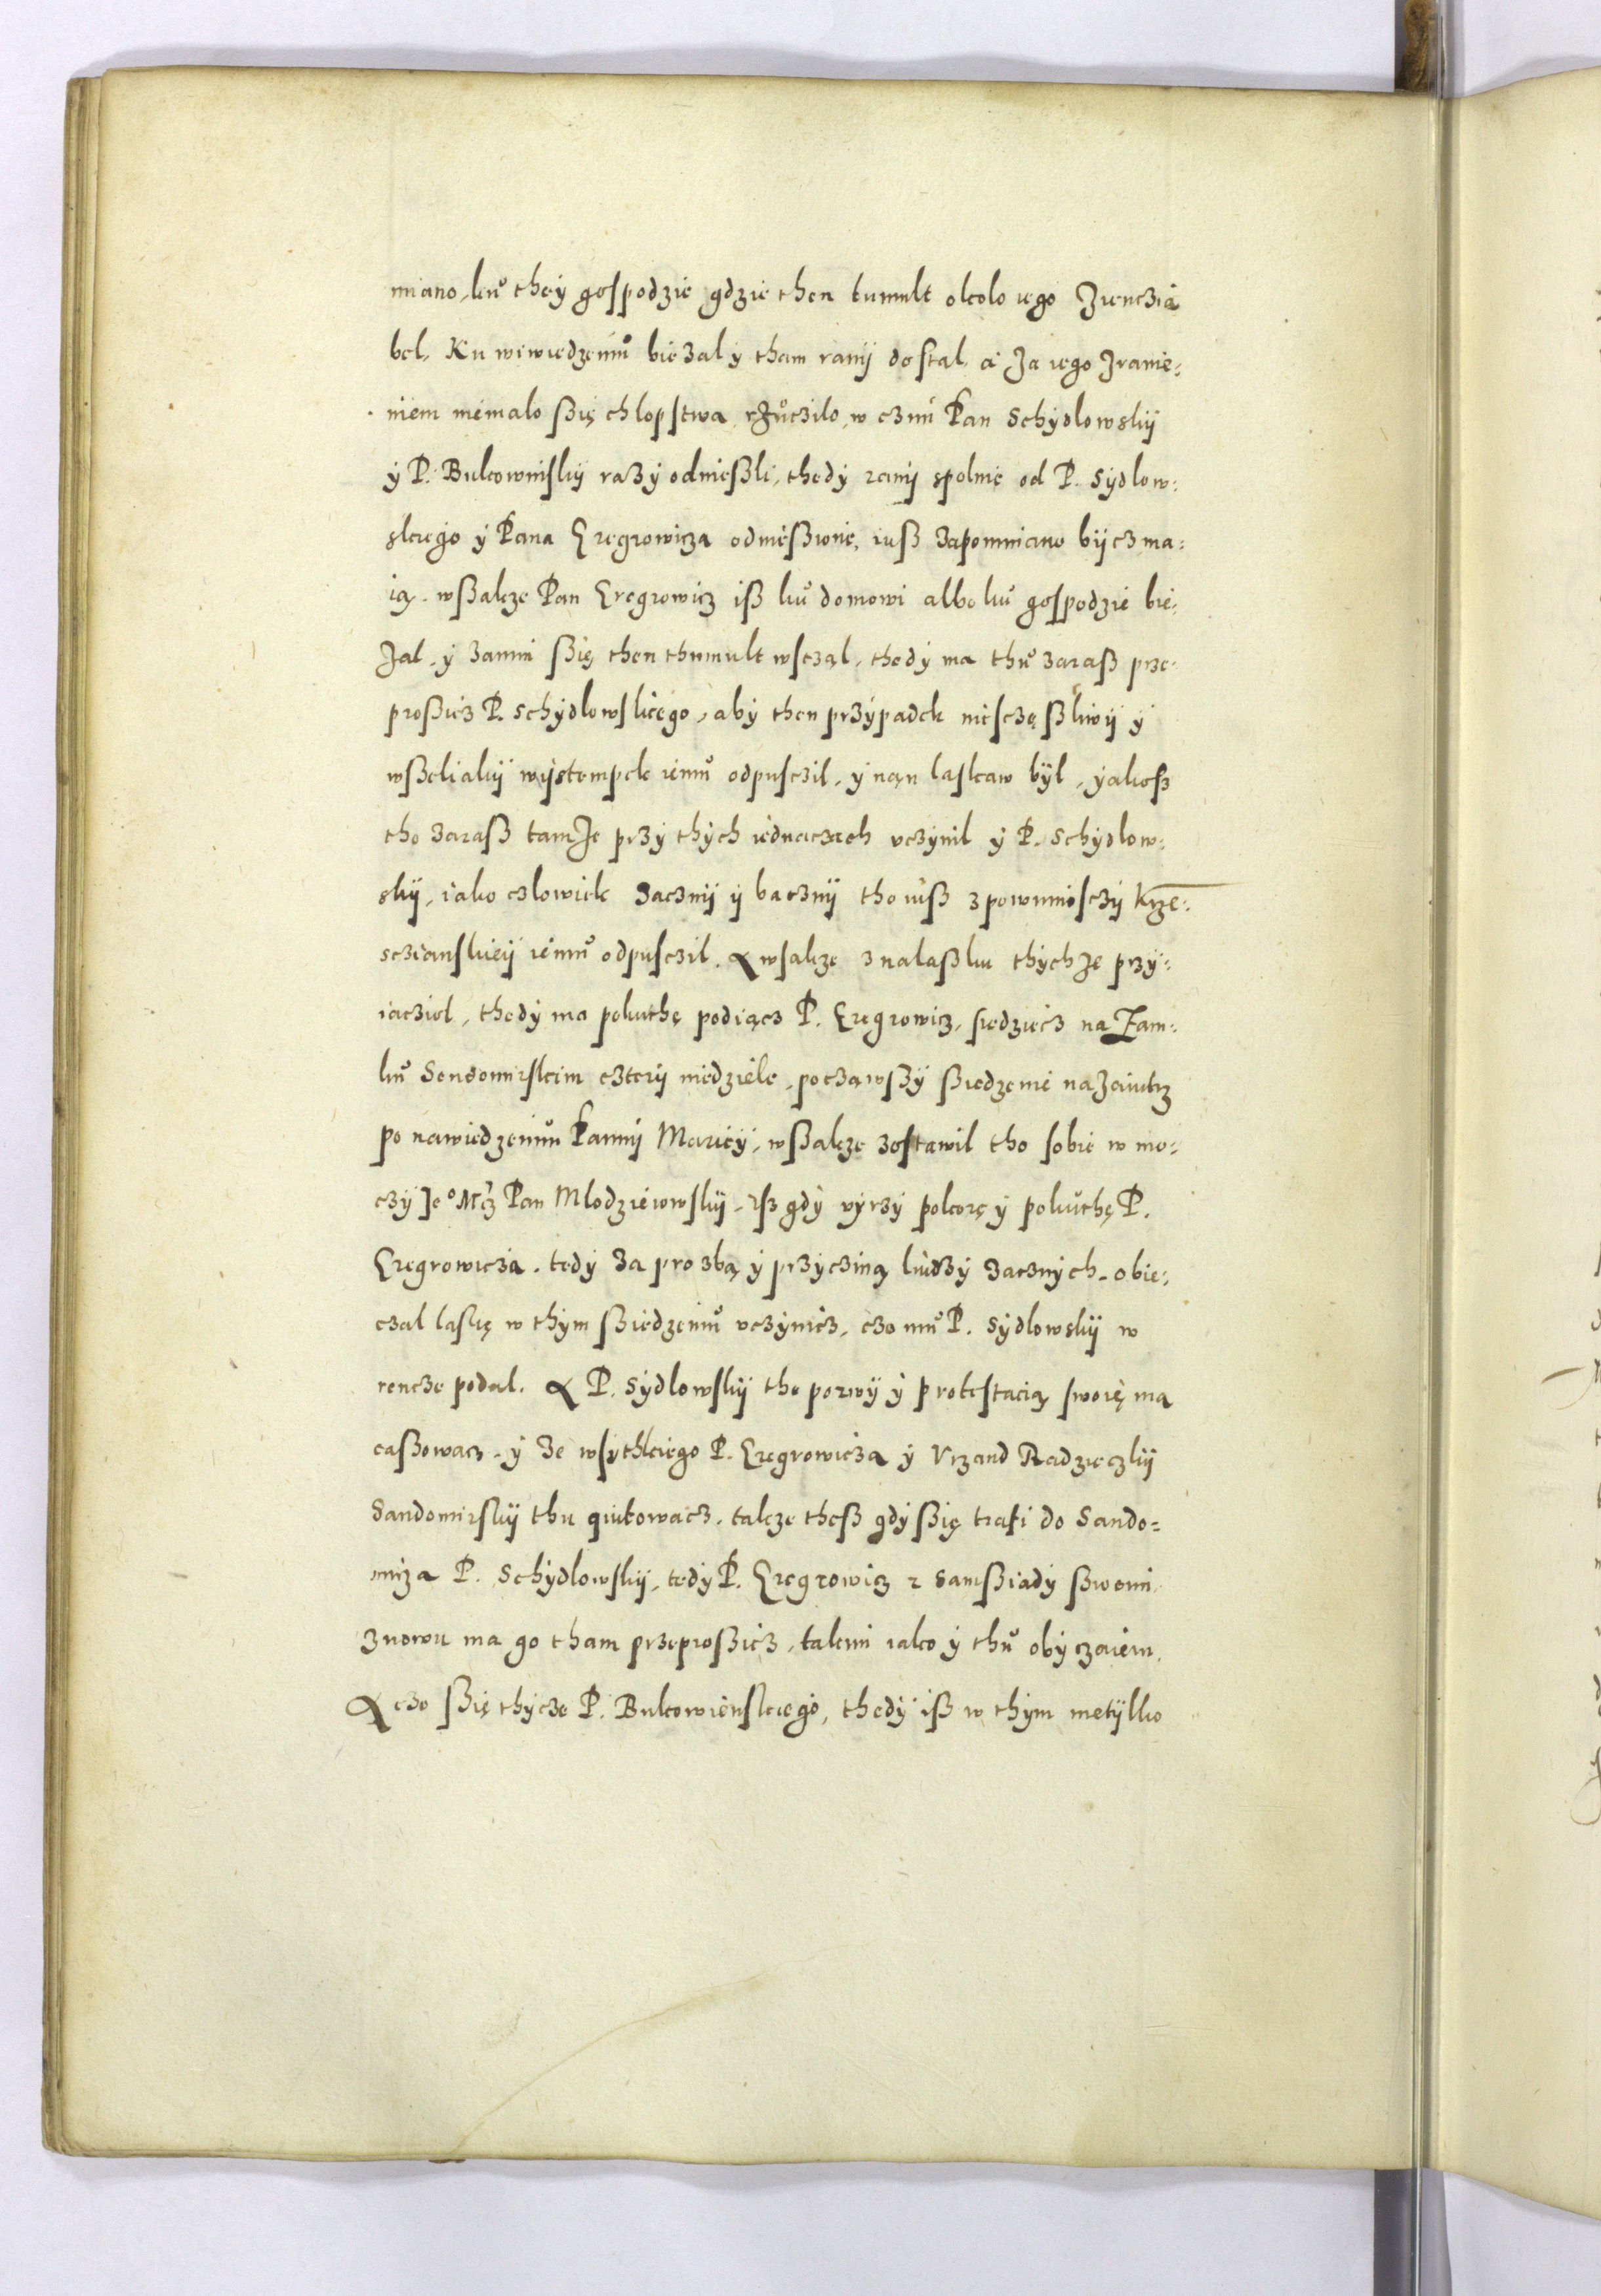 miano, ku they gospodzie gdzie then tumult okolo iego Zienczia
bel, Ku wiwiedzeniu biezal y tham ranÿ dostal, a Za iego Zranie-
niem niemalo ßię chlopstwa rzuczilo, w czim Pan Schÿdlowskÿ
ÿ P. Bukowinskÿ razÿ odnießli, thedÿ ranÿ spolnie od P. Sÿdlow-
skiego ÿ Pana Gregrowicza odnießione, iuß zapomniano bÿcz ma-
ią. wßakze Pan Gregrowicz iß ku domowi albo ku gospodzie bie-
Zal, ÿ zanim ßię then thumult wsczął, thedÿ ma thu zaraß prze-
proßicz P. Schÿdlowskiego, abÿ then przÿpadek niesczęßliwÿ ÿ
wßeliakÿ wÿstempek iemu odpusczil, ÿ nan laskaw bÿl, ÿakoß
tho zaraß tamZe przÿ thÿch iednaczach vczÿnil ÿ P. Schÿdlow-
skÿ, iako czlowiek Zacznÿ ÿ bacznÿ tho iuß z powinnosczÿ Krze-
scianskieÿ iemu odpusczil. A wsakze z nalaßku thÿchZe przÿ-
iacziol, thedÿ ma pokuthę podiącz P. Gregrowicz, siedziecz na Zam-
ku Sendomirskim czterÿ niedziele, począwszÿ ßiedzenie naZaiutrz
po nawiedzeniu Pannÿ Marieÿ, wßakze zostawil tho sobie w mo-
czÿ Jeº Mcz Pan Mlodziewowskÿ, iß gdÿ vÿrzÿ pokorę ÿ pokuthę P.
Gregrowicza, tedÿ Za prozbą ÿ przÿcziną ludzÿ Zacznÿch, obie-
czal laskę w thÿm ßiedzeniu vczÿnicz, czo mu P. Sÿdlowskÿ w
rencze podal. A P. Sÿdlowskÿ the pozwÿ ÿ protestacią swoię ma
caßowacz, ÿ Ze wsÿthkiego P. Gregrowicza ÿ Vrzand Radzieczkÿ
Sandomirskÿ thu quitowacz, takze theß gdÿ ßię trafi do Sando-
mirza P. Schÿdlowskÿ, tedÿ P. Gregrowicz z Samßiadÿ ßwemi
znowu ma go tham przeproßicz, takim iako ÿ thu obÿczaiem.
A czo ßię thÿcze P. Bukowienskiego, thedÿ iß w thÿm nietÿlko